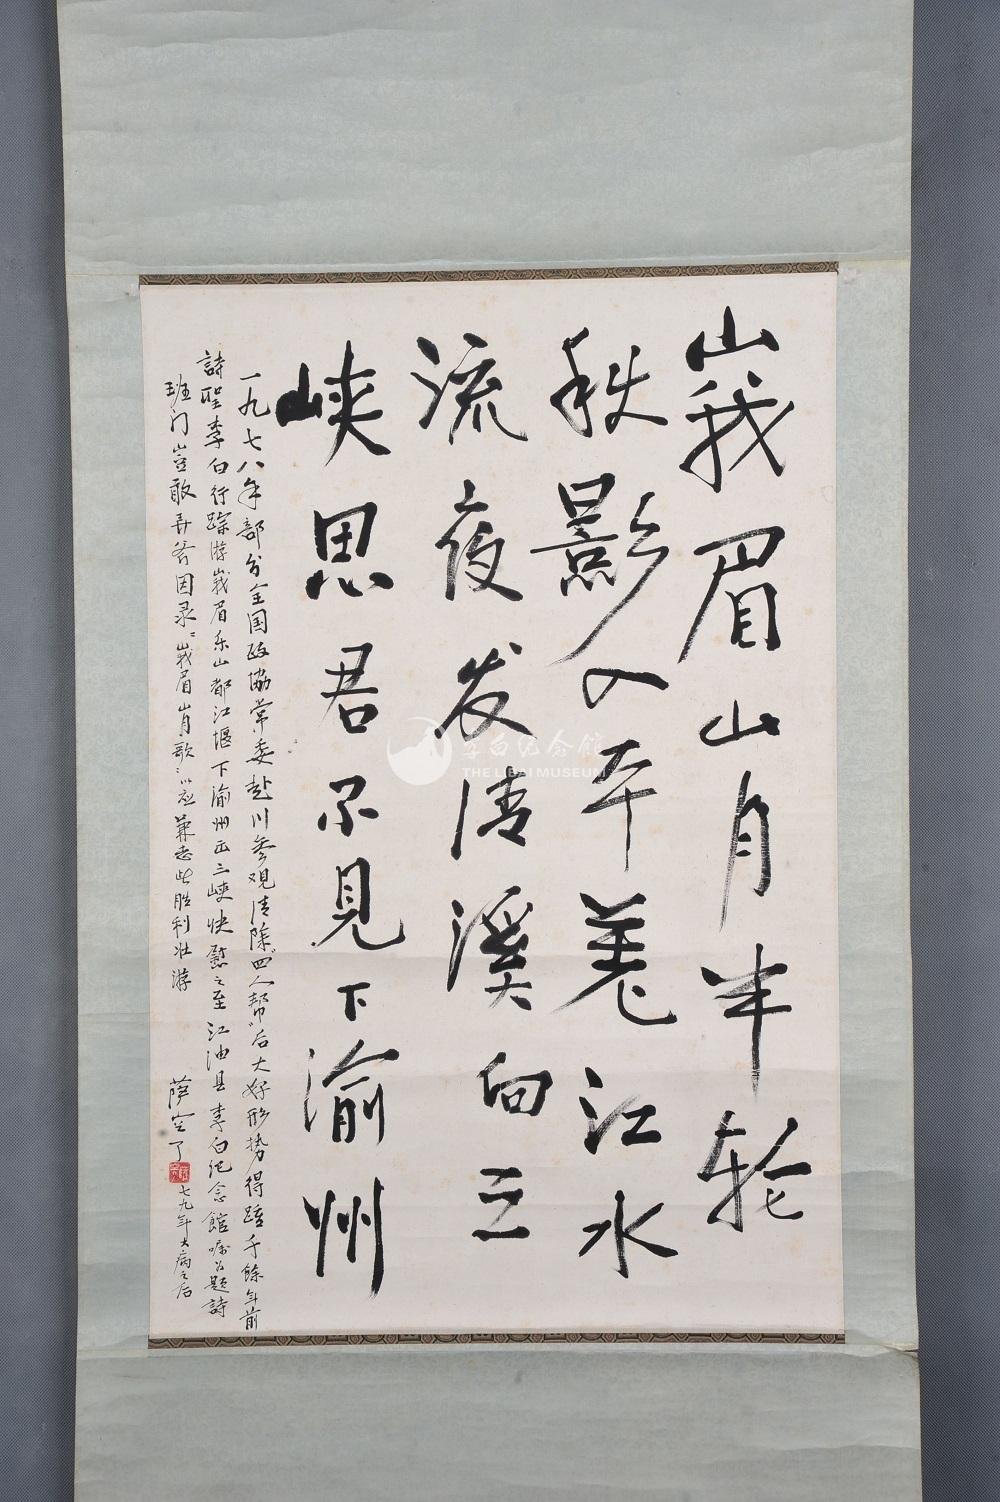 峩眉山月半轮
秋影入平羌江水
流夜发清溪向三
峡思君不见下渝州
一九七八年部分全国政协常委赴川参观清除"四人帮"后大好形势得踵千餘年前
詩聖李白行踪游峩眉乐山都江堰下渝州出三峡快慰之至江油县李白纪念館嘱为题詩
班门岂敢弄斧因录"峩眉山月歌"以应兼志此胜利壮游
萨空了
七九年大病之后
李白纪念館
THE LIBAI MUSEUM